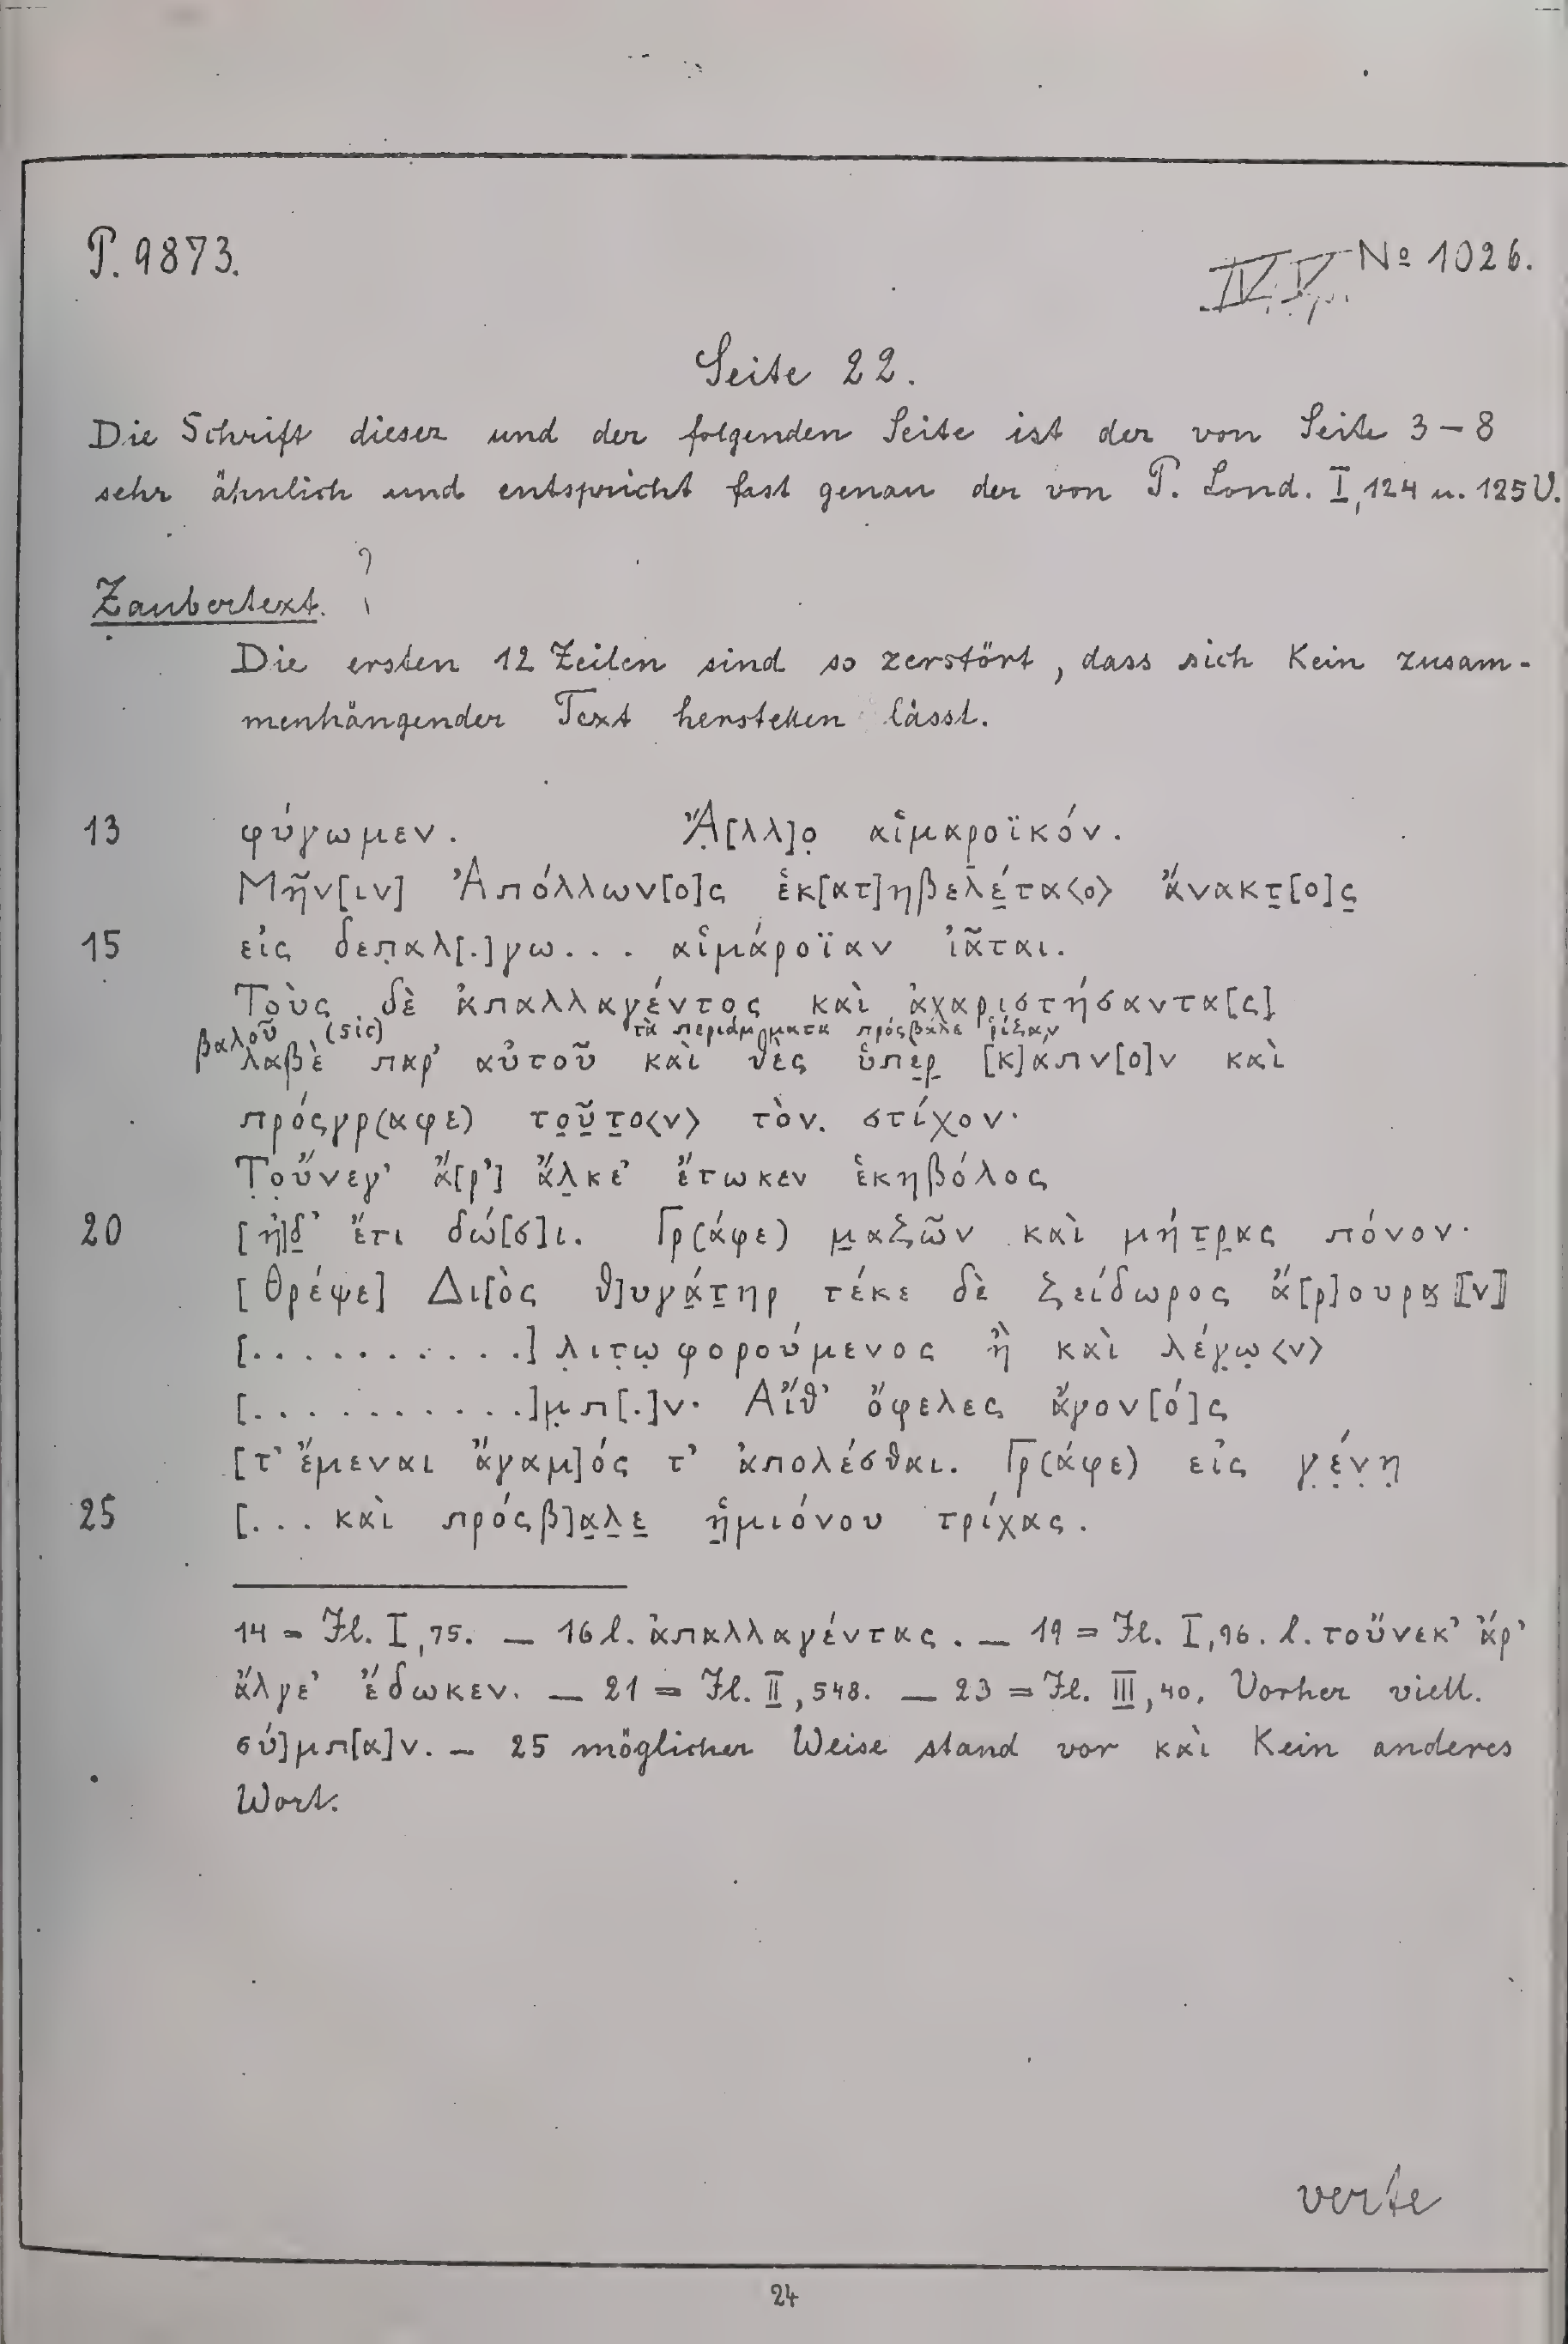 P. 9873.
IV. V p. No 1026.
Seite 22.
Die Schrift dieser und der folgenden Seite ist der von Seite 3–8
sehr ähnlich und entspricht fast genau der von P. Lond. I, 124 u. 125 V.
?
Zaubertext.
Die ersten 12 Zeilen sind so zerstört, dass sich kein zusam-
menhängender Text herstellen lässt.
13 φύγωμεν. Ἄ̣[λλ]ο̣ αἱμαροϊκόν.
Μῆν[ιν] Ἀπόλλων[ο]ς ἑκ[ατ]ηβελέ̣τα<ο> ἄνακτ̣[ο]ς̣
15 εἰς δεπ̣αλ[.]γω... αἱμάροϊαν ἰᾶται.
Τοὺς δὲ ἀπαλλαγέντος καὶ ἀχαριστήσαντα[ς]
βαλοῦ (sic) τὰ περιάμματα πρόςβαλε ῥίζαν
λαβὲ παρ' αὐτοῦ καὶ θὲς ὑπε̣ρ̣ [κ]απν[ο]ν καὶ
πρόςγρ(αφε) το̣ῦ̣τ̣ο<ν> τὸν. στίχον·
Τ̣ο̣ὔνεγ' ἄ[ρ'] ἄλ̣κε' ἔτωκεν ἑκηβόλος
20 [ἠ]δ̣' ἔτι δώ[σ]ι. Γρ(άφε) μ̣αζῶν καὶ μήτ̣ρ̣ας πόνον·
[θρέψε] Δι[ὸς θ]υγά̣τ̣ηρ τέκε δὲ ζείδωρος ἄ[ρ]ουρα̣⟦ν⟧
[...........] λ̣ιτ̣ω̣ φορούμενος ἢ καὶ λέγ̣ω̣<ν>
[...........]μ̣π[.]ν· Αἴθ' ὄφελες ἄγον[ό]ς
[τ' ἔμεναι ἄγαμ]ός τ' ἀπολέσθαι. Γρ(άφε) εἰς γ̣έ̣ν̣η̣
25 [... καὶ πρόςβ]α̣λ̣ε̣ ἡ̣μιόνου τρίχας.
14 = Il. I, 75. — 16 l. ἀπαλλαγέντας. — 19 = Il. I, 96. l. τοὔνεκ' ἄρ'
ἄλγε' ἔδωκεν. — 21 = Il. II, 548. — 23 = Il. III, 40. Vorher viell.
σύ]μπ[α]ν. — 25 möglicher Weise stand vor καὶ kein anderes
Wort.
verte
24